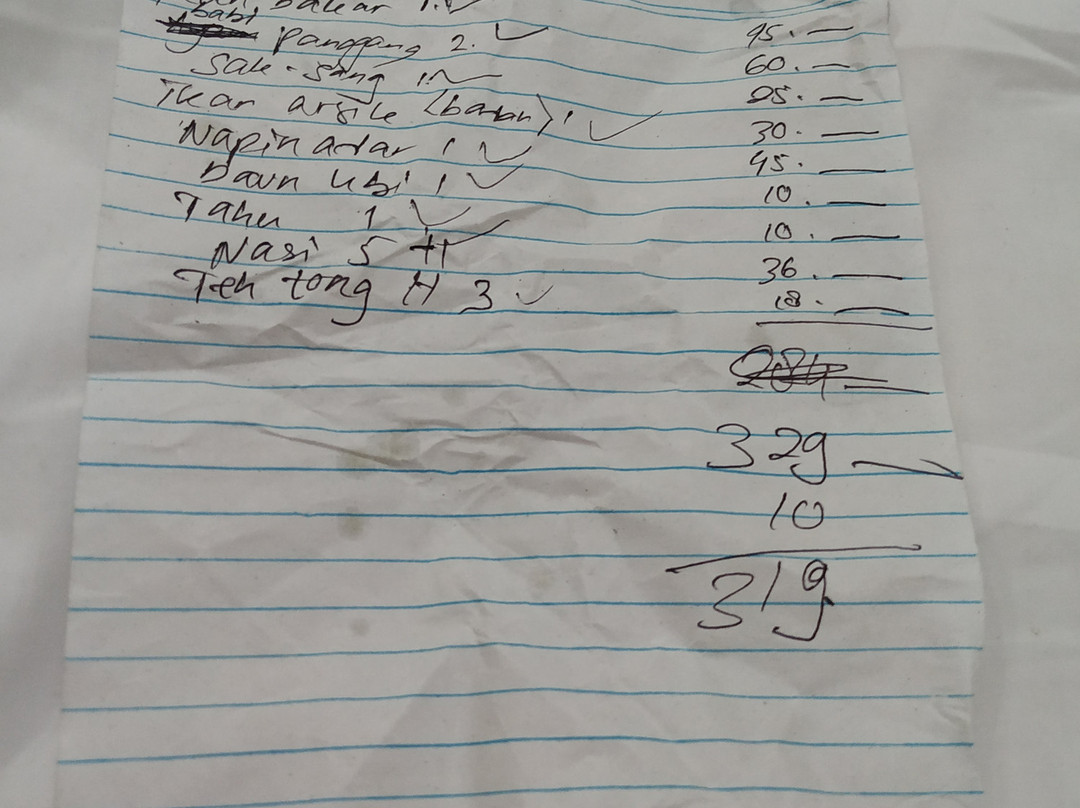 bakar 1. 95. —
babi panggang 2. 60. —
Sak-sang 1. 25. —
Ikan arsik 1 30. —
Napinadar 1 45. —
Daun ubi 1 10. —
Tahu 1 10. —
Nasi 5 36. —
Teh tong H 3 18. —
329 —
10
319